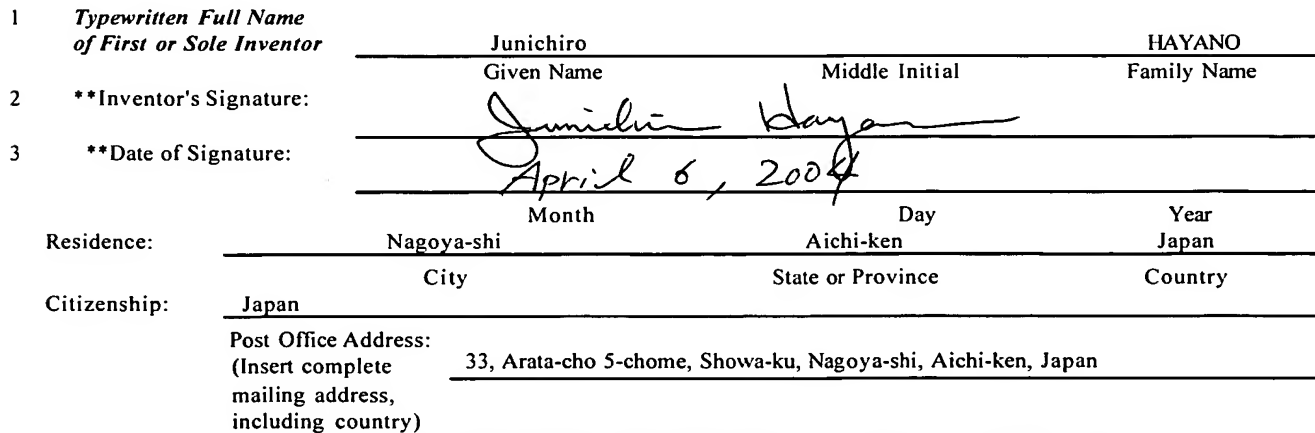 1 Typewritten Full Name
of First or Sole Inventor Junichiro HAYANO
Given Name Middle Initial Family Name
2 **Inventor's Signature: Junichiro Hayano
3 **Date of Signature: April 6, 2004
Month Day Year
Residence: Nagoya-shi Aichi-ken Japan
City State or Province Country
Citizenship: Japan
Post Office Address:
(Insert complete 33, Arata-cho 5-chome, Showa-ku, Nagoya-shi, Aichi-ken, Japan
mailing address,
including country)